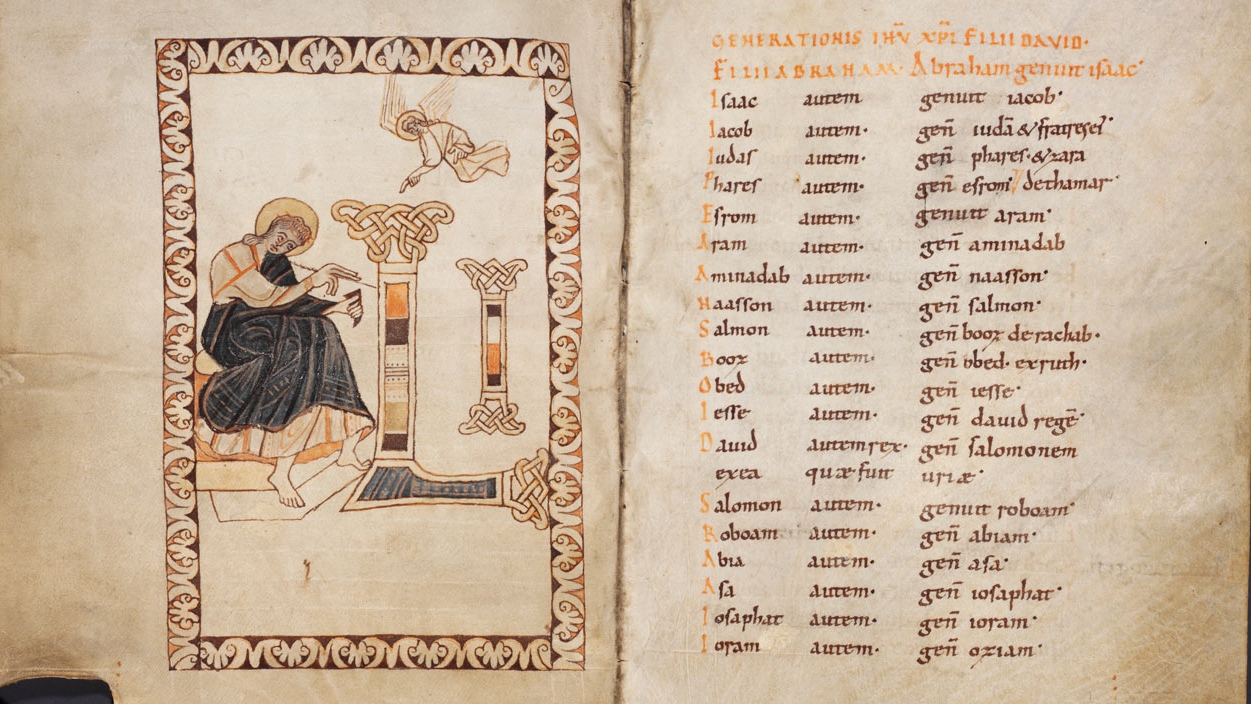 LI
GENERATIONIS IHV̄ XPĪ FILII DAVID·
FILII ABRAHAM· Abraham genuit isaac·
Isaac autem genuit iacob·
Iacob autem· geñ iudā & fratres ei'·
Iudas autem· geñ phares· & zara
Phares autem· geñ esrom de thamar·
Esrom autem· genuit aram·
Aram autem· geñ aminadab
Aminadab autem· geñ naasson·
Naasson autem· geñ salmon·
Salmon autem· geñ booz de rachab·
Booz autem· geñ obed· ex ruth·
Obed autem· geñ iesse·
Iesse autem· geñ dauid regē·
Dauid autem rex· geñ salomonem
ex ea quæ fuit uriæ·
Salomon autem· genuit roboam·
Roboam autem· geñ abiam·
Abia autem· geñ asa·
Asa autem· geñ iosaphat·
Iosaphat autem· geñ ioram·
Ioram autem· geñ oziam·